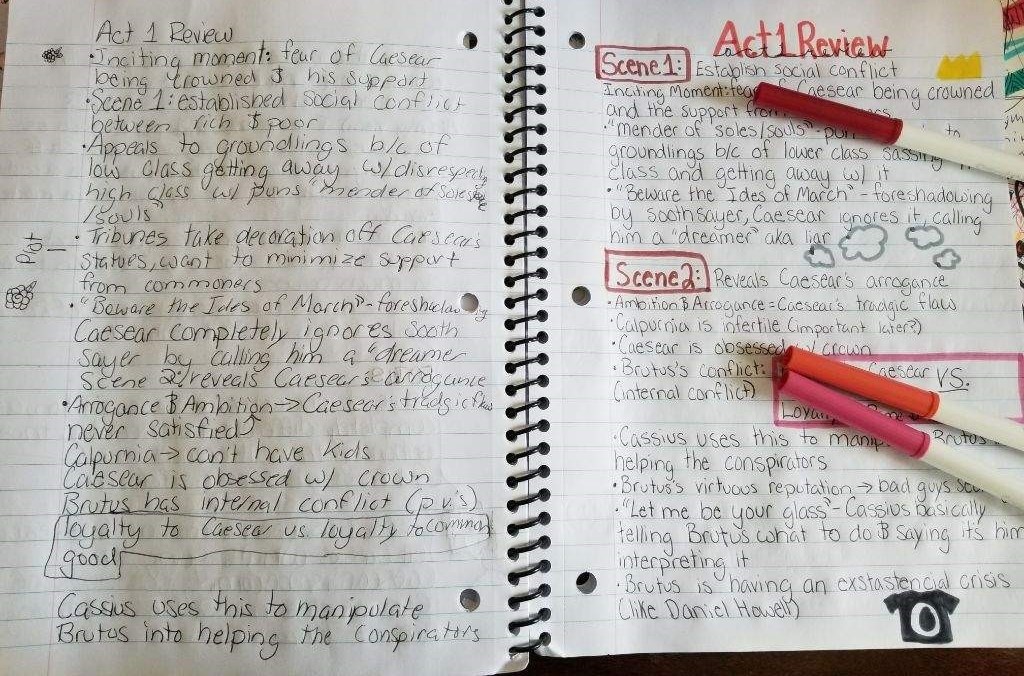 Act 1 Review
• Inciting moment: fear of Caesear
being crowned & his support
• Scene 1: established social conflict
between rich & poor
• Appeals to groundlings b/c of
low class getting away w/ disrespecting
high class w/ puns "mender of soles
/souls"
Plot
• Tribunes take decoration off Caesear's
statues, want to minimize support
from commoners
• "Beware the Ides of March" - foreshadowing
Caesear completely ignores Sooth
Sayer by calling him a "dreamer
Scene 2: reveals Caesear's arrogance
• Arrogance & Ambition → Caesear's tradgic flaw
never satisfied
Calpurnia → can't have kids
Caesear is obsessed w/ crown
Brutus has internal conflict (p v.s)
loyalty to Caesear vs. loyalty to common
good
Cassius uses this to manipulate
Brutus into helping the Conspirators
Act 1 Review
Scene 1: Establish social conflict
Inciting Moment: fear Caesear being crowned
and the support from
• "mender of soles/souls" - pun to
groundlings b/c of lower class sassing
class and getting away w/ it
• "Beware the Ides of March" - foreshadowing
by soothsayer, Caesear ignores it, calling
him a "dreamer" aka liar
Scene 2: Reveals Caesear's arrogance
• Ambition & Arrogance = Caesear's tradgic flaw
• Calpurnia is infertile (important later?)
• Caesear is obsessed w/ crown
• Brutus's conflict: Caesear VS.
(internal conflict)
• Cassius uses this to Brutus
helping the conspirators
• Brutus's virtuous reputation → bad guys
• "Let me be your glass" - Cassius basically
telling Brutus what to do & saying it's him
interpreting it
• Brutus is having an exstastencial crisis
(like Daniel Howell)